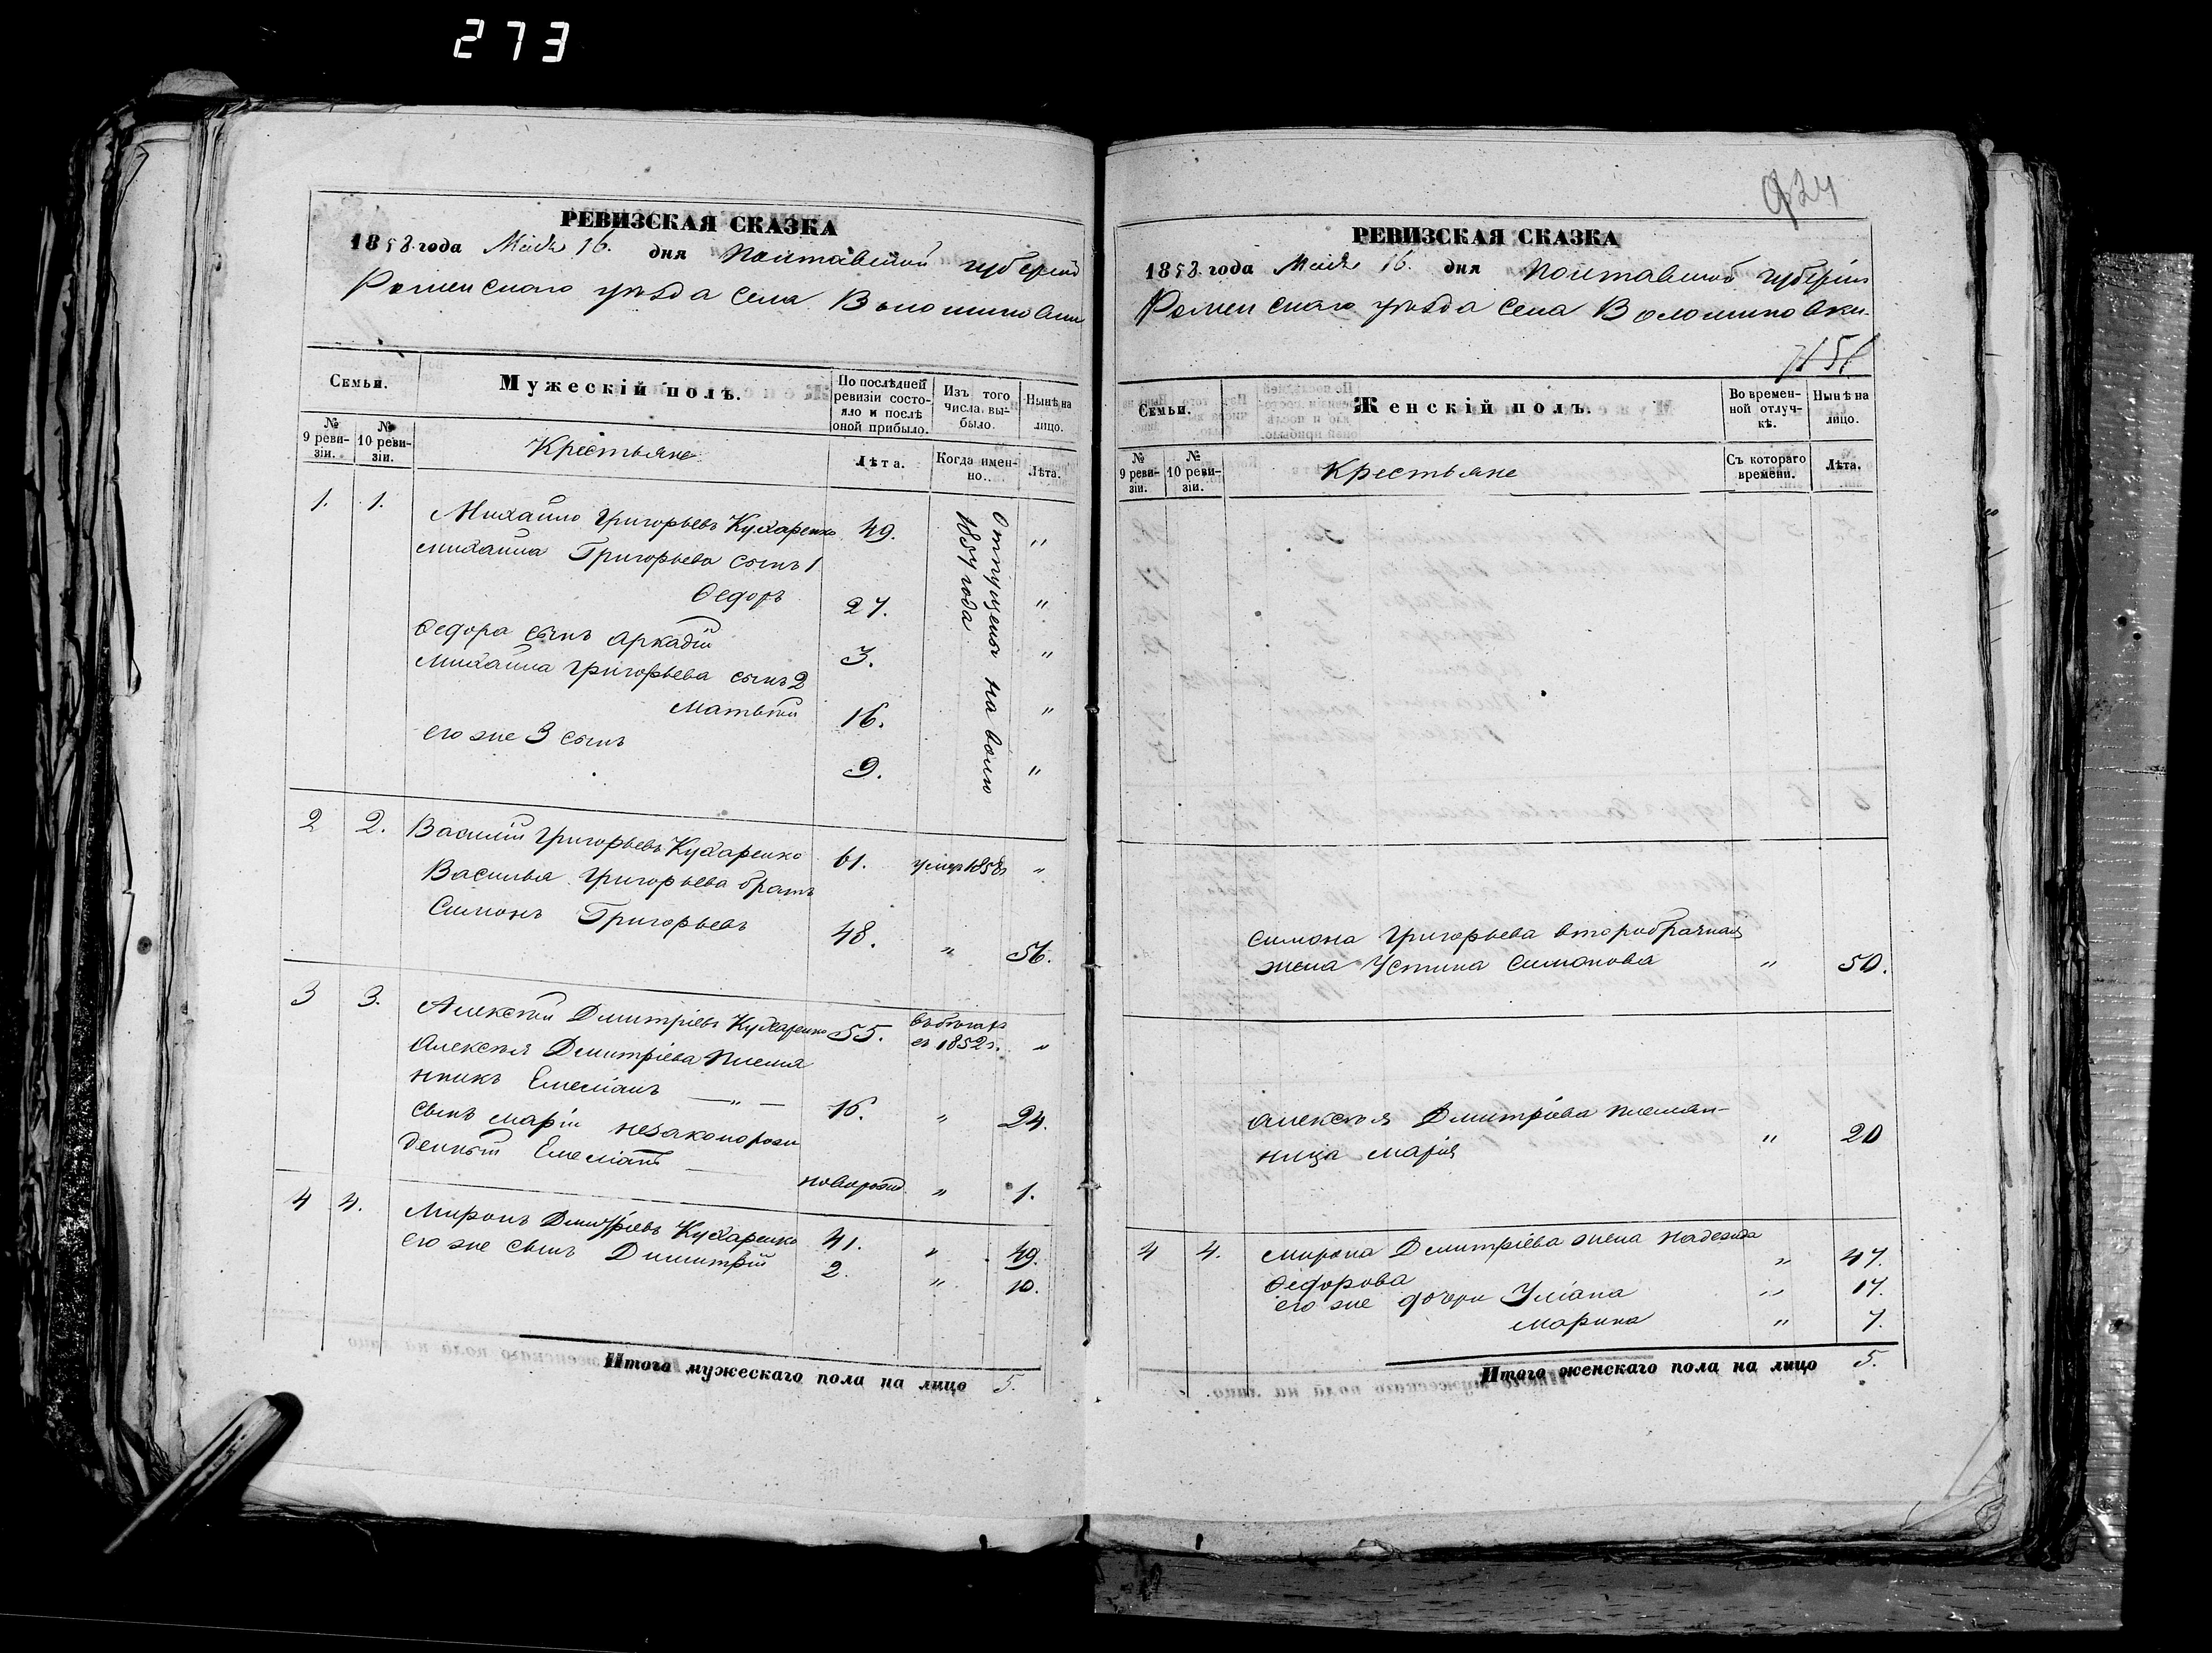 273
РЕВИЗСКАЯ СКАЗКА
1858 года Мая 16. дня Полтавской губерніи
Роменскаго уѣзда села Волошиновки
Семьи.
Мужескій полъ.
По послѣдней ревизіи состояло и послѣ оной прибыло.
Изъ того числа выбыло.
Нынѣ на лицо.
№ 9 ревизіи.
№ 10 ревизіи.
Крестьяне
Лѣта.
Когда именно.
Лѣта.
1. 1. Михайло Григорьевъ Кухаренко 49. "
Отпущены на волю
1854 года
Михайла Григорьева сынъ 1
Ѳедоръ 27. "
Ѳедора сынъ Аркадій 3. "
Михайла Григорьева сынъ 2
Матвѣй 16. "
его же 3 сынъ 9. "
2 2. Василій Григорьевъ Кухаренко 61. умер 1858 "
Василья Григорьева братъ
Симонъ Григорьевъ 48. " 56.
3 3. Алексѣй Дмитріевъ Кухаренко 55. въ бѣгахъ "
съ 1852 г.
Алексѣя Дмитріева племян
никъ Емеліанъ — " — 16. " 24.
сынъ Маріи незаконорож
денный Емеліанъ новорожд. " 1.
4 4. Миронъ Дмитріевъ Кухаренко 41. " 49.
его же сынъ Димитрій 2. " 10.
Итого мужескаго пола на лицо 5.
924
РЕВИЗСКАЯ СКАЗКА
1858 года Мая 16. дня Полтавской губерніи
Роменскаго уѣзда села Волошиновки.
Семьи.
Женскій полъ.
Во временной отлучкѣ.
Нынѣ на лицо.
№ 9 ревизіи.
№ 10 ревизіи.
Крестьяне
Съ котораго времени.
Лѣта.
Симона Григорьева второбрачная
жена Устина Симонова " 50.
Алексѣя Дмитріева племян-
ница Марія " 20
4 4. Мирона Дмитріева жена Надежда
Ѳедорова " 47.
его же дочери Уліана " 17.
Марина " 7.
Итого женскаго пола на лицо 5.